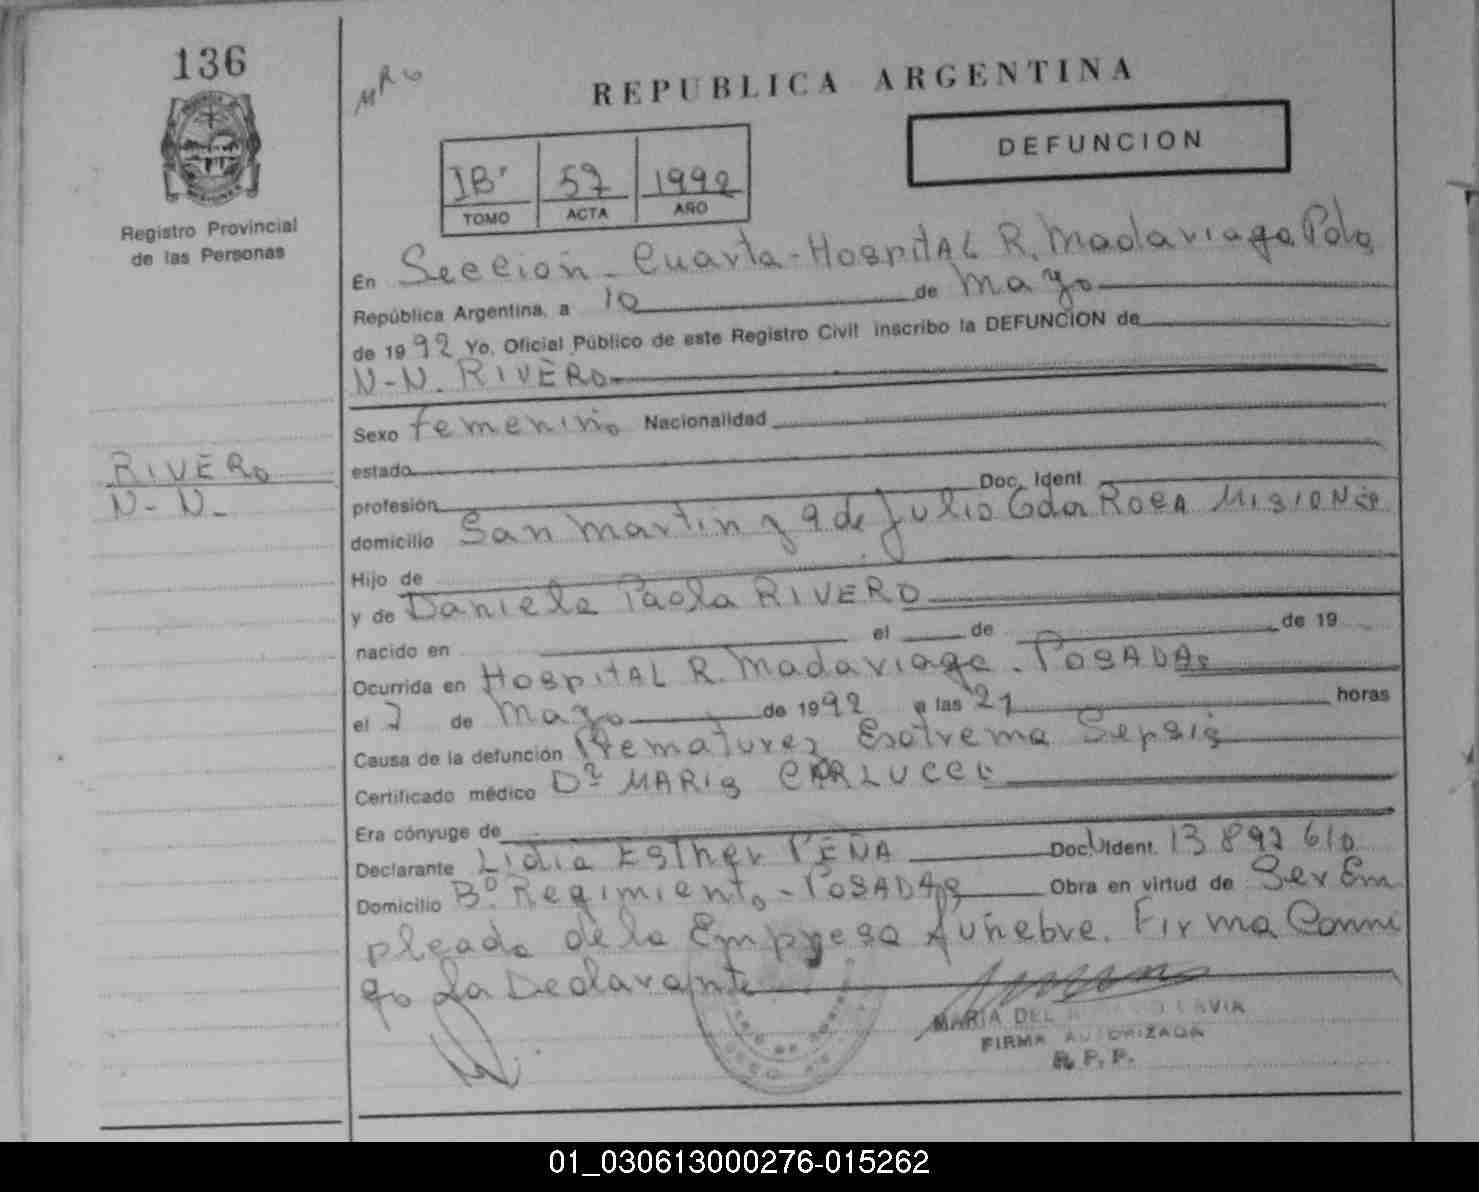 136
REPUBLICA ARGENTINA
DEFUNCION
IB' 57 1992
TOMO ACTA AÑO
Registro Provincial
de las Personas
En Seccion - Cuarta - Hospital R. Madariaga Pdas
República Argentina, a 10 de Mayo
de 1992 Yo, Oficial Público de este Registro Civil inscribo la DEFUNCION de
N-N. RIVERO
Sexo femenino Nacionalidad
RIVERO
N-N.
estado
profesión Doc. Ident
domicilio San Martin y 9 de Julio Gdor Roca Misiones
Hijo de
y de Daniela Paola RIVERO
nacido en el de de 19
Ocurrida en Hospital R. Madariaga. POSADAS
el 7 de Mayo de 1992 a las 21 horas
Causa de la defunción Prematurez Extrema Sepsis
Certificado médico Dra MARIS CARLUCCI
Era cónyuge de
Declarante Lidia Esther PEÑA Doc. Ident. 13 892 610
Domicilio Bº Regimiento - POSADAS Obra en virtud de Ser Em
pleada de la Empresa fúnebre. Firma Conmi
go La Declarante
MARIA DEL
FIRMA AUTORIZADA
R. P. P.
01_030613000276-015262